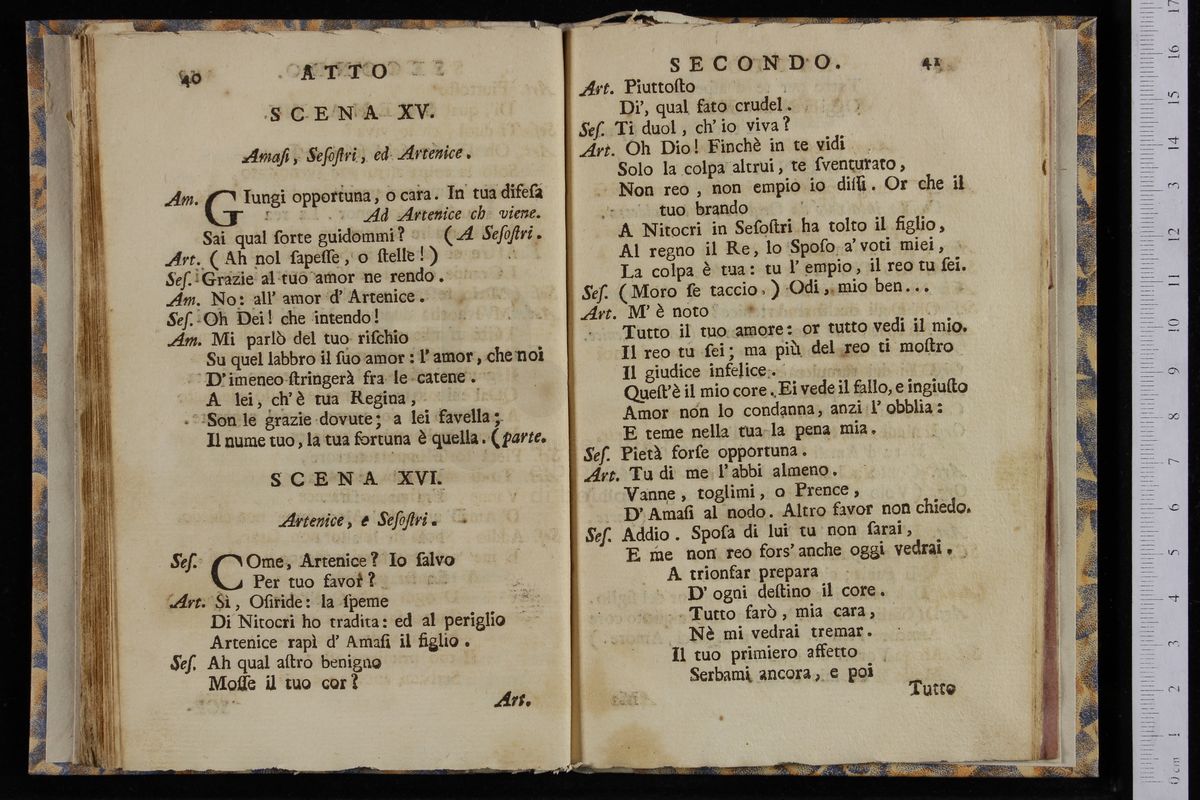 40 ATTO
SCENA XV.
Amaſi, Seſoſtri, ed Artenice.
Am. GIungi opportuna, o cara. In tua difeſa
Ad Artenice ch viene.
Sai qual ſorte guidommi? (A Seſoſtri.
Art. (Ah nol ſapeſſe, o ſtelle!)
Seſ. Grazie al tuo amor ne rendo.
Am. No: all' amor d' Artenice.
Seſ. Oh Dei! che intendo!
Am. Mi parlò del tuo riſchio
Su quel labbro il ſuo amor: l' amor, che noi
D' imeneo ſtringerà fra le catene.
A lei, ch' è tua Regina,
Son le grazie dovute; a lei favella;
Il nume tuo, la tua fortuna è quella. (parte.
SCENA XVI.
Artenice, e Seſoſtri.
Seſ. COme, Artenice? Io ſalvo
Per tuo favor?
Art. Sì, Oſiride: la ſpeme
Di Nitocri ho tradita: ed al periglio
Artenice rapì d' Amaſi il figlio.
Seſ. Ah qual aſtro benigno
Moſſe il tuo cor?
Art.
SECONDO. 41
Art. Piuttoſto
Di', qual fato crudel.
Seſ. Ti duol, ch' io viva?
Art. Oh Dio! Finchè in te vidi
Solo la colpa altrui, te ſventurato,
Non reo, non empio io diſſi. Or che il
tuo brando
A Nitocri in Seſoſtri ha tolto il figlio,
Al regno il Re, lo Spoſo a' voti miei,
La colpa è tua: tu l' empio, il reo tu ſei.
Seſ. (Moro ſe taccio.) Odi, mio ben...
Art. M' è noto
Tutto il tuo amore: or tutto vedi il mio.
Il reo tu ſei; ma più del reo ti moſtro
Il giudice infelice.
Queſt' è il mio core. Ei vede il fallo, e ingiuſto
Amor non lo condanna, anzi l' obblia:
E teme nella tua la pena mia.
Seſ. Pietà forſe opportuna.
Art. Tu di me l' abbi almeno.
Vanne, toglimi, o Prence,
D' Amaſi al nodo. Altro favor non chiedo.
Seſ. Addio. Spoſa di lui tu non ſarai,
E me non reo fors' anche oggi vedrai.
A trionfar prepara
D' ogni deſtino il core.
Tutto farò, mia cara,
Nè mi vedrai tremar.
Il tuo primiero affetto
Serbami ancora, e poi
Tutto